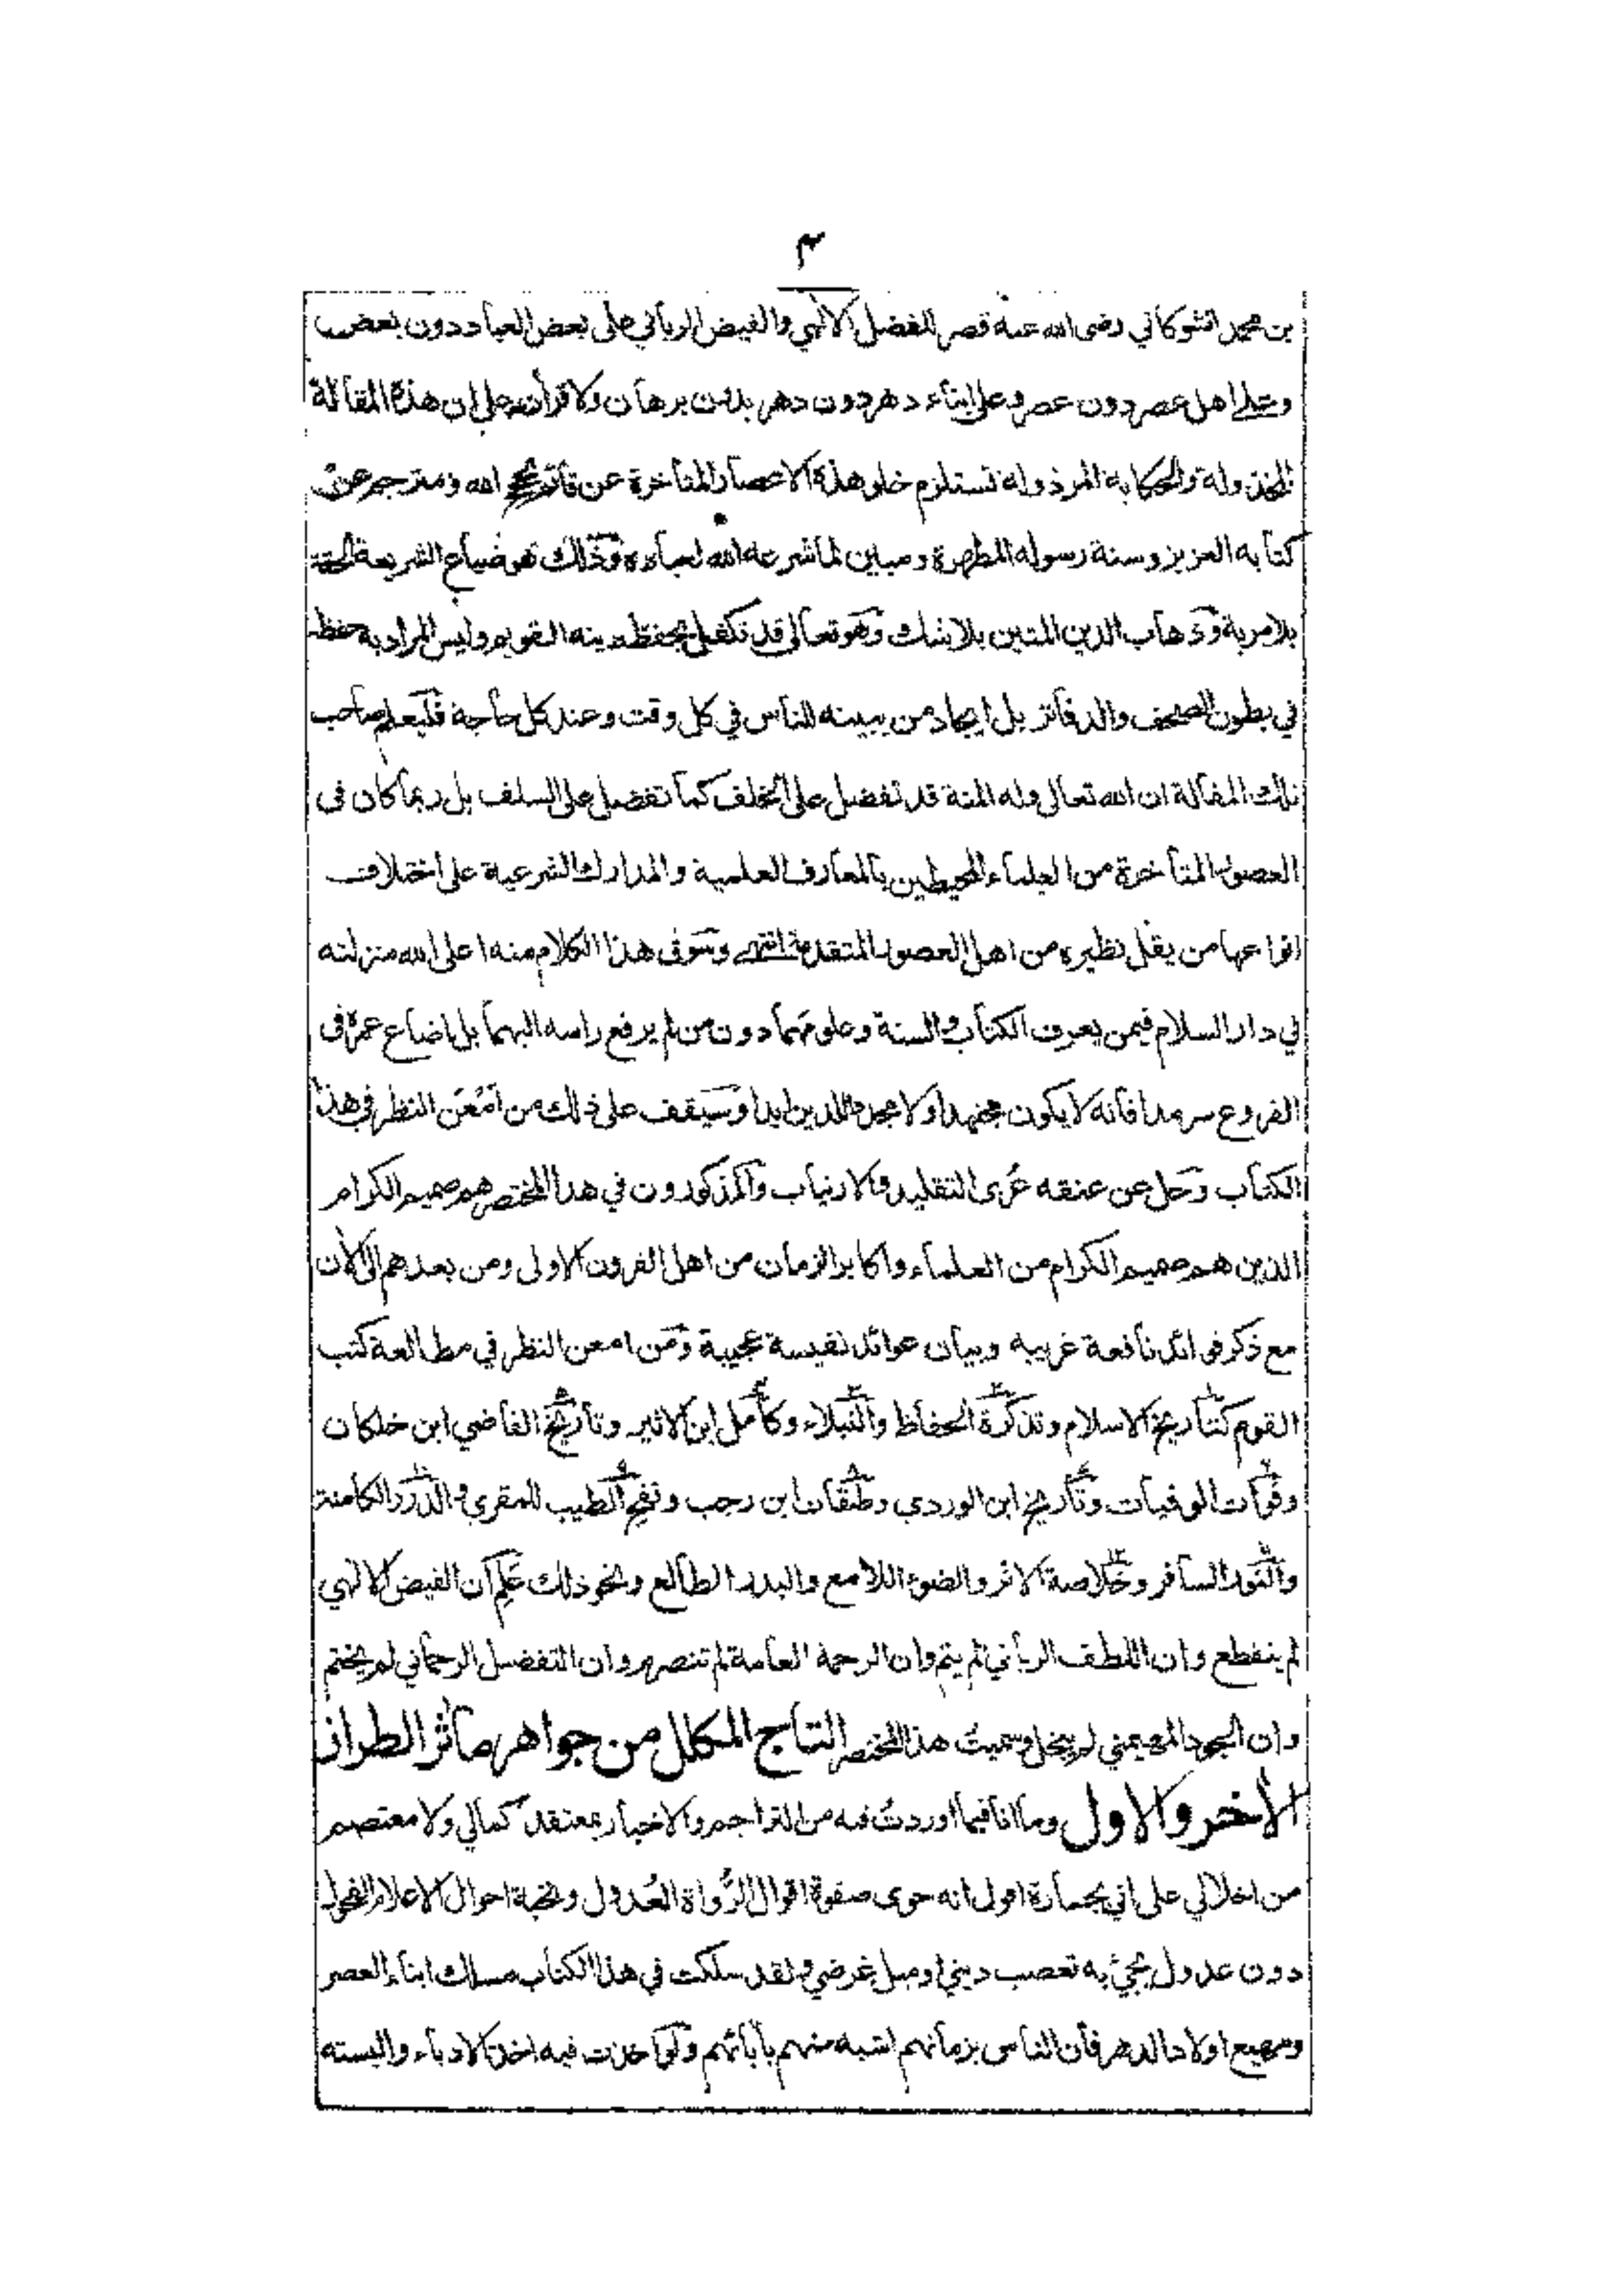 ٣
بن محمد الشوكاني رضى الله عنه قصر للفضل الالهي والفيض الرباني على بعض العباد دون بعض
وعلى اهل عصر دون عصر وعلى ابناء دهر دون دهر بدون برهان ولا قرآن على ان هذه المقالة
المخذولة والحكاية المرذولة تستلزم خلو هذه الاعصار المتأخرة عن قائم بحجج الله ومترجم عن
كتابه العزيز وسنة رسوله المطهرة ومبين لما شرعه الله لعباده وذلك هو ضياع الشريعة الحقة
بلا مرية وذهاب الدين المتين بلا شك وهو تعالى قد تكفل بحفظ دينه القويم وليس المراد به حفظه
في بطون الصحف والدفاتر بل ايجاد من يبينه للناس في كل وقت وعند كل حاجة فليعلم صاحب
تلك المقالة ان الله تعالى وله المنة قد تفضل على الخلف كما تفضل على السلف بل ربما كان فى
العصور المتأخرة من العلماء المحيطين بالمعارف العلمية والمدارك الشرعية على اختلاف
انواعها من يقل نظيره من اهل العصور المتقدمة انتهى وسوق هذا الكلام منه اعلى الله منزلته
في دار السلام فيمن يعرف الكتاب والسنة وعلومهما دون من لم يرفع راسه اليهما بل اضاع عمره فى
الفروع سرمدا فانه لا يكون مجتهدا ولا مجددا للدين ابدا وسيقف على ذلك من امعن النظر في هذا
الكتاب وحل عن عنقه عرى التقليد والارتياب والمذكورون في هذا المختصر هم صميم الكرام
الذين هم صميم الكرام من العلماء واكابر الزمان من اهل القرون الاولى ومن بعدهم الى الآن
مع ذكر فوائد نافعة غريبه وبيان عوائد نفيسة عجيبة ومن امعن النظر في مطالعة كتب
القوم كتاريخ الاسلام وتذكرة الحفاظ والنبلاء وكامل ابن الاثير وتاريخ القاضي ابن خلكان
وفوات الوفيات وتاريخ ابن الوردي وطبقات ابن رجب ونفح الطيب للمقري والدرر الكامنة
والنور السافر وخلاصة الاثر والضوء اللامع والبدر الطالع ونحو ذلك علم ان الفيض الالهي
لم ينقطع وان اللطف الرباني لم يتم وان الرحمة العامة لم تنصرم وان التفضل الرحماني لم يختم
وان الجود المهيمني لم يبخل وسميت هذا المختصر التاج المكلل من جواهر مآثر الطراز
الآخر والاول وما انا فيما اوردت فيه من التراجم والاخبار بمعتقد كمالي ولا معتصم
من اخلالي على اني بجسارة اقول انه حوى صفوة اقوال الرواة العدول ونخبة احوال الاعلام الفحول
دون عدول يجئ به تعصب ديني او ميل غرضي ولقد سلكت في هذا الكتاب مسلك ابناء العصر
ومهيع اولاد الدهر فان الناس بزمانهم اشبه منهم بآبائهم وكم اخذت فيه اخذ الادباء والبسته